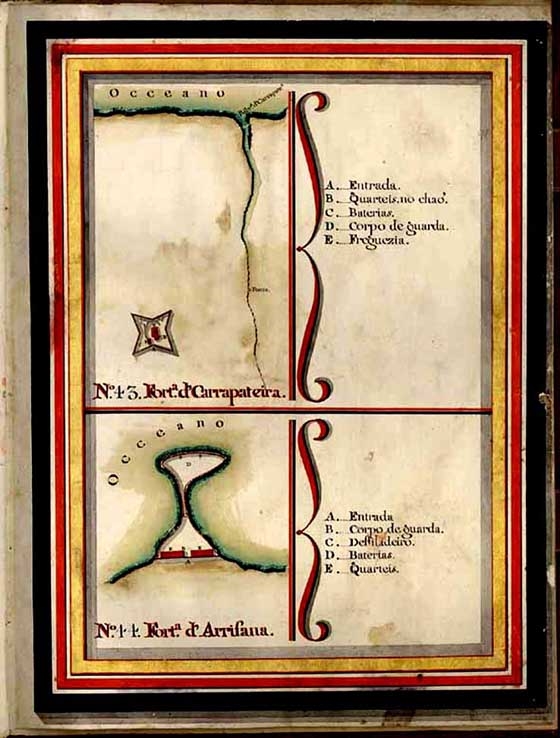 Occeano
A. Entrada.
B. Quarteis, no chaõ.
C. Baterias.
D. Corpo de guarda.
E. Freguezia.
Nº. 43. Fort.ª d'Carrapateira.
Occeano
D
A
A. Entrada
B. Corpo de guarda.
C. Desfiladeiro.
D. Baterias.
E. Quarteis.
Nº. 44. Fort.ª d'Arrifana.